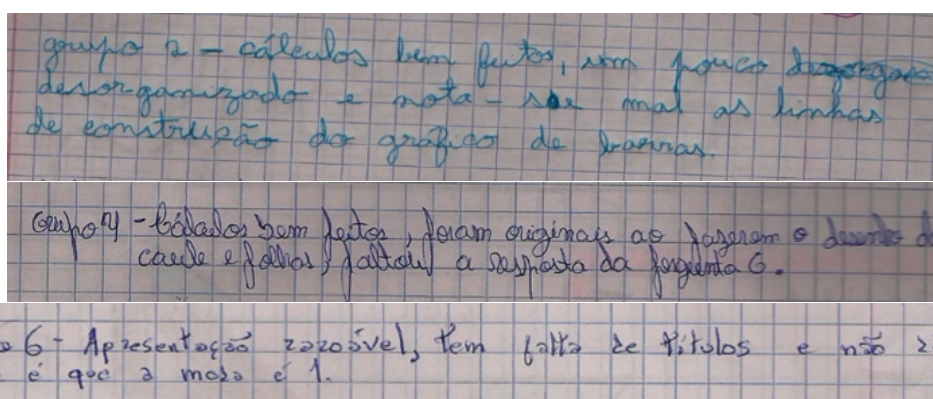 grupo 2 - cálculos bem feitos, um pouco
desorganizado e nota-se mal as linhas
de construção do gráfico de barras.
Grupo 4 - Cálculos bem feitos, foram originais ao fazerem o desenho d
caule e folhas, faltou a resposta da pergunta 6.
6 - Apresentação razoável, tem falta de títulos e não
é que a moda é 1.